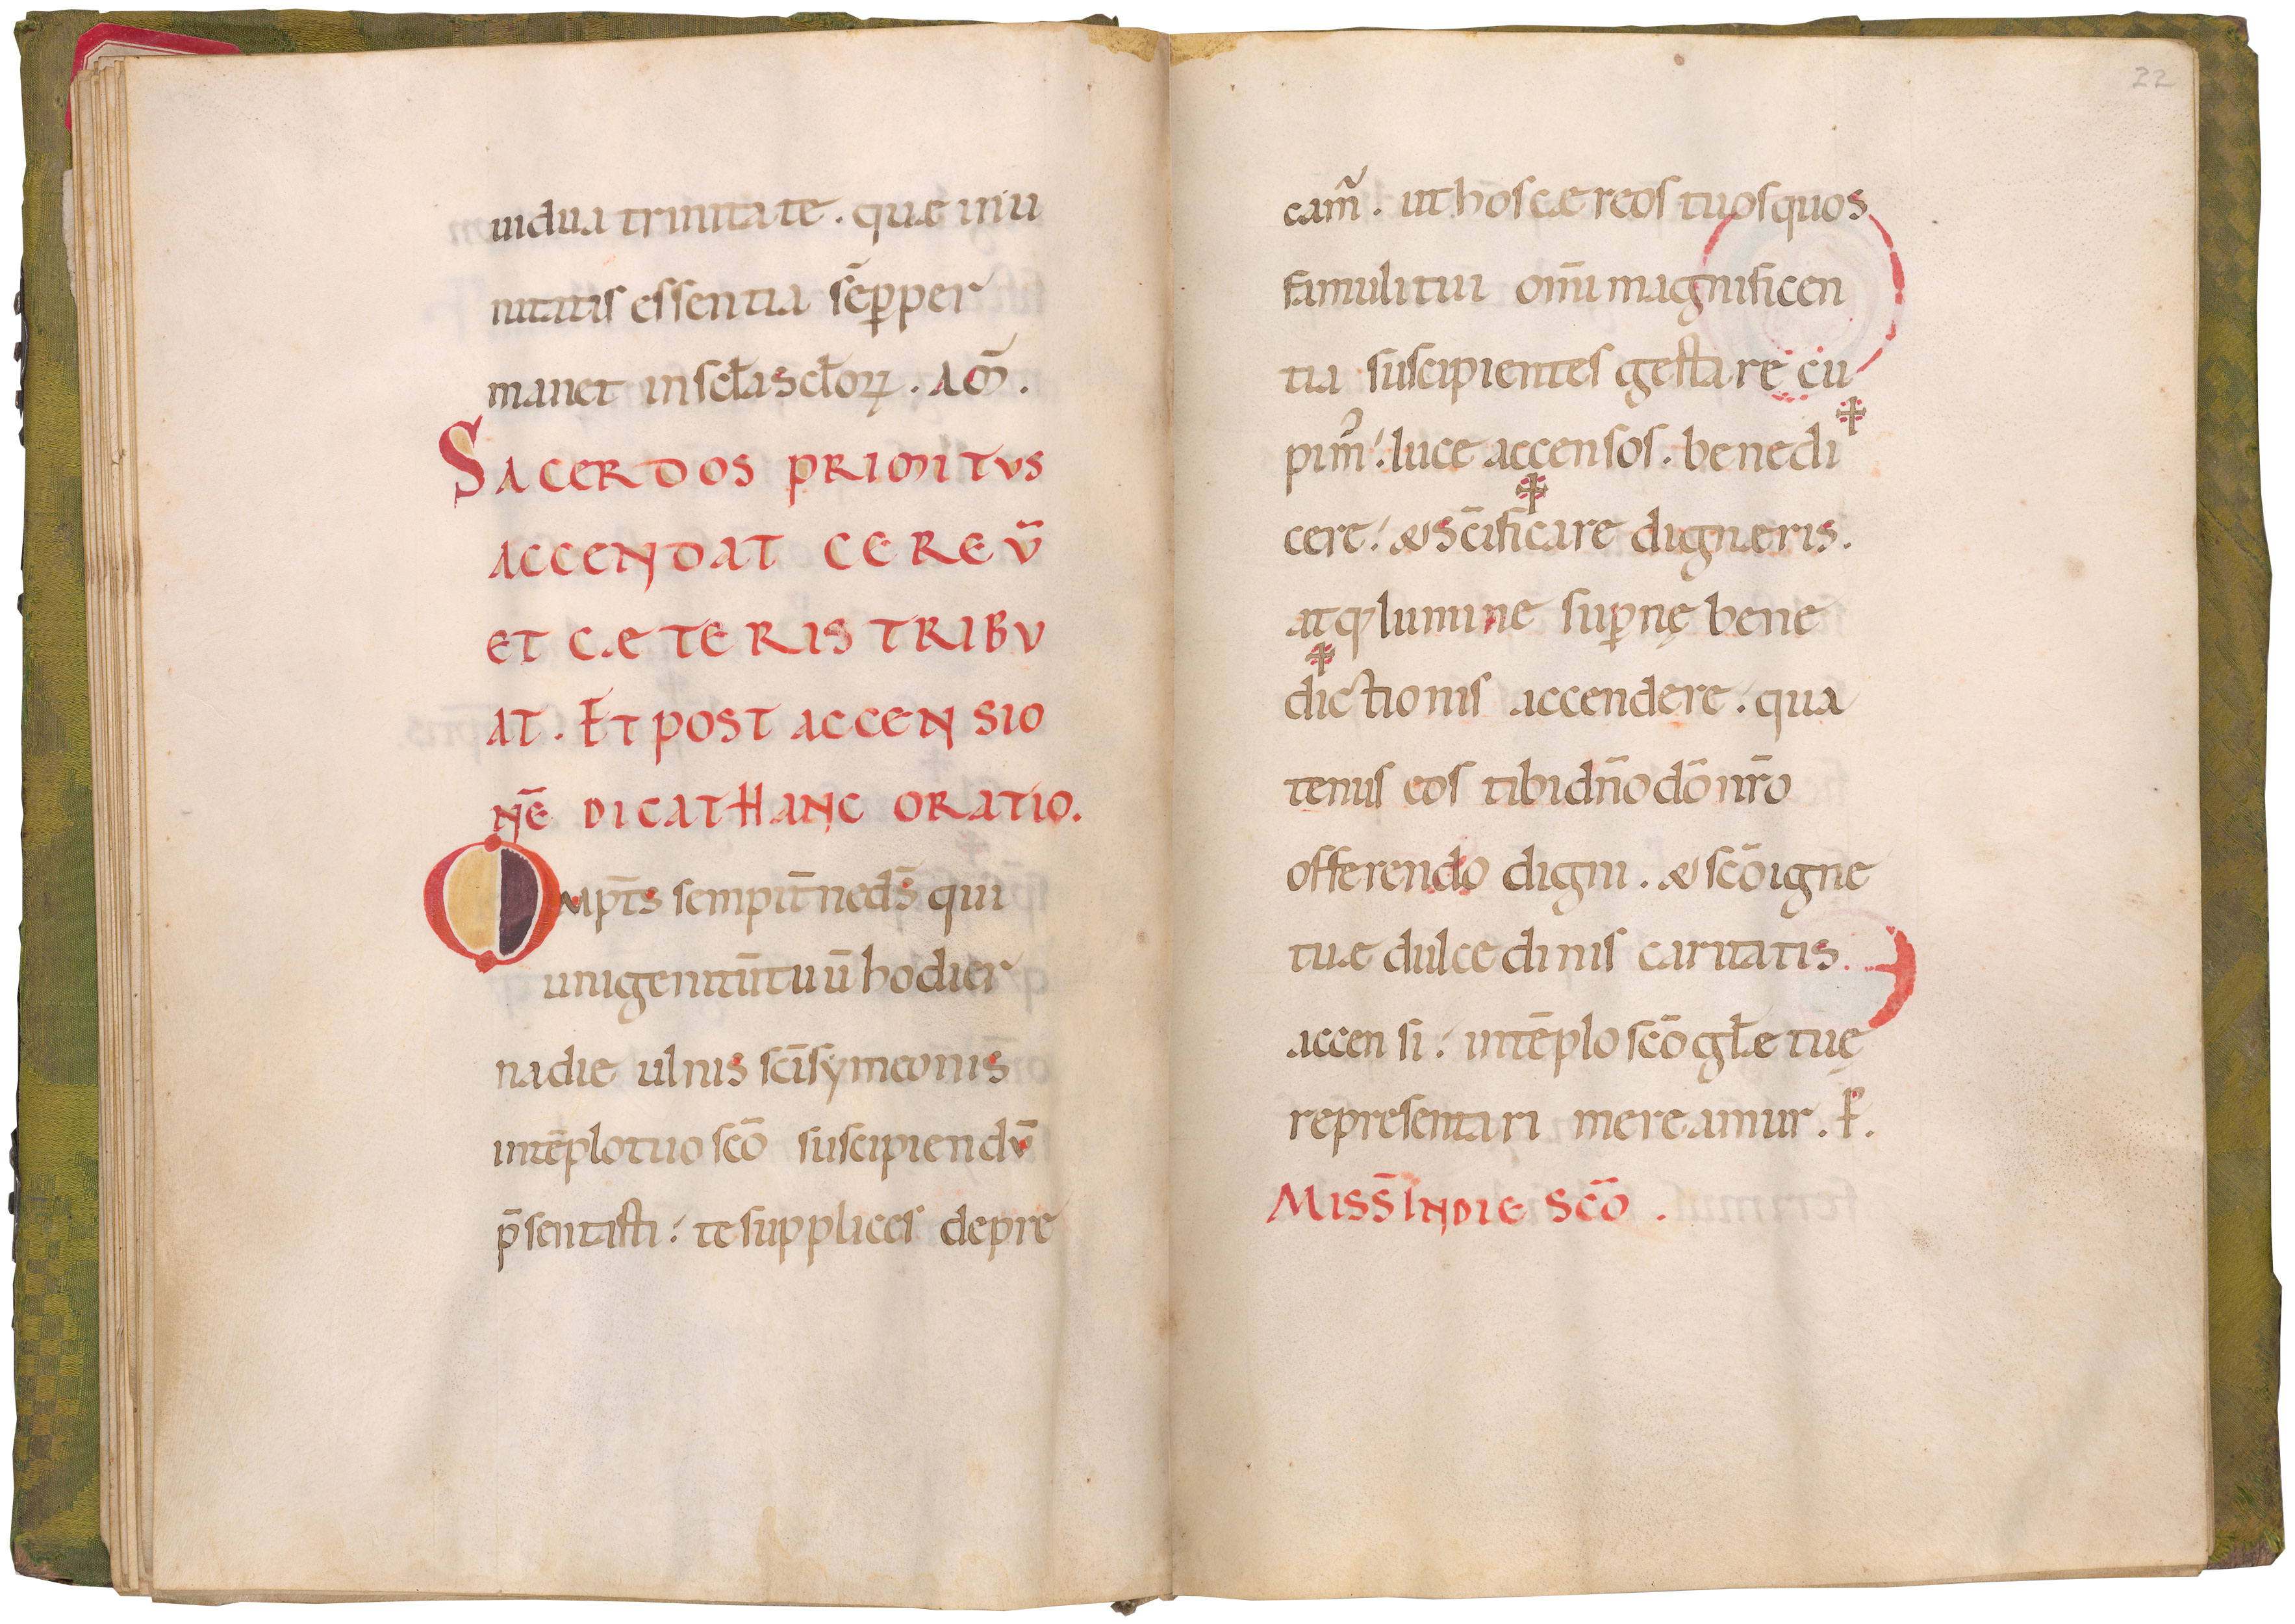 uidua trinitate. quæ inu
nitatis essentia sẽp per
manet in sc̄la sc̄lorꝝ. am̄.
SACERDOS PRIMITVS
ACCENDAT CEREV̄
ET CÆTERIS TRIBV
AT. ET POST ACCENSIO
NĒ DICAT HANC ORATIO.
Omp̄s sempit̄ne ds̄ qui
unigenitū tuū hodier
na die ulnis sc̄i symeonis
in tēplo tuo sc̄o suscipiendū
p̄sentasti: te supplices depre
22
cam̄. ut hos cæreos tuos quos
famuli tui om̄i magnificen
tia suscipientes gestare cu
pim᾽: luce accensos. benedi
✠
cere: & sc̄ificare digneris.
✠
atq; lumine sup̄nę bene
✠
dictionis accendere. qua
tenus eos tibi dn̄o dō nr̄o
offerendo digni. & sc̄o igne
tuæ dulcedinis caritatis.
accensi: in tēplo sc̄o gl̄æ tuę
represẽntari mereamur. P.
MISS̄ IN DIE SC̄O.